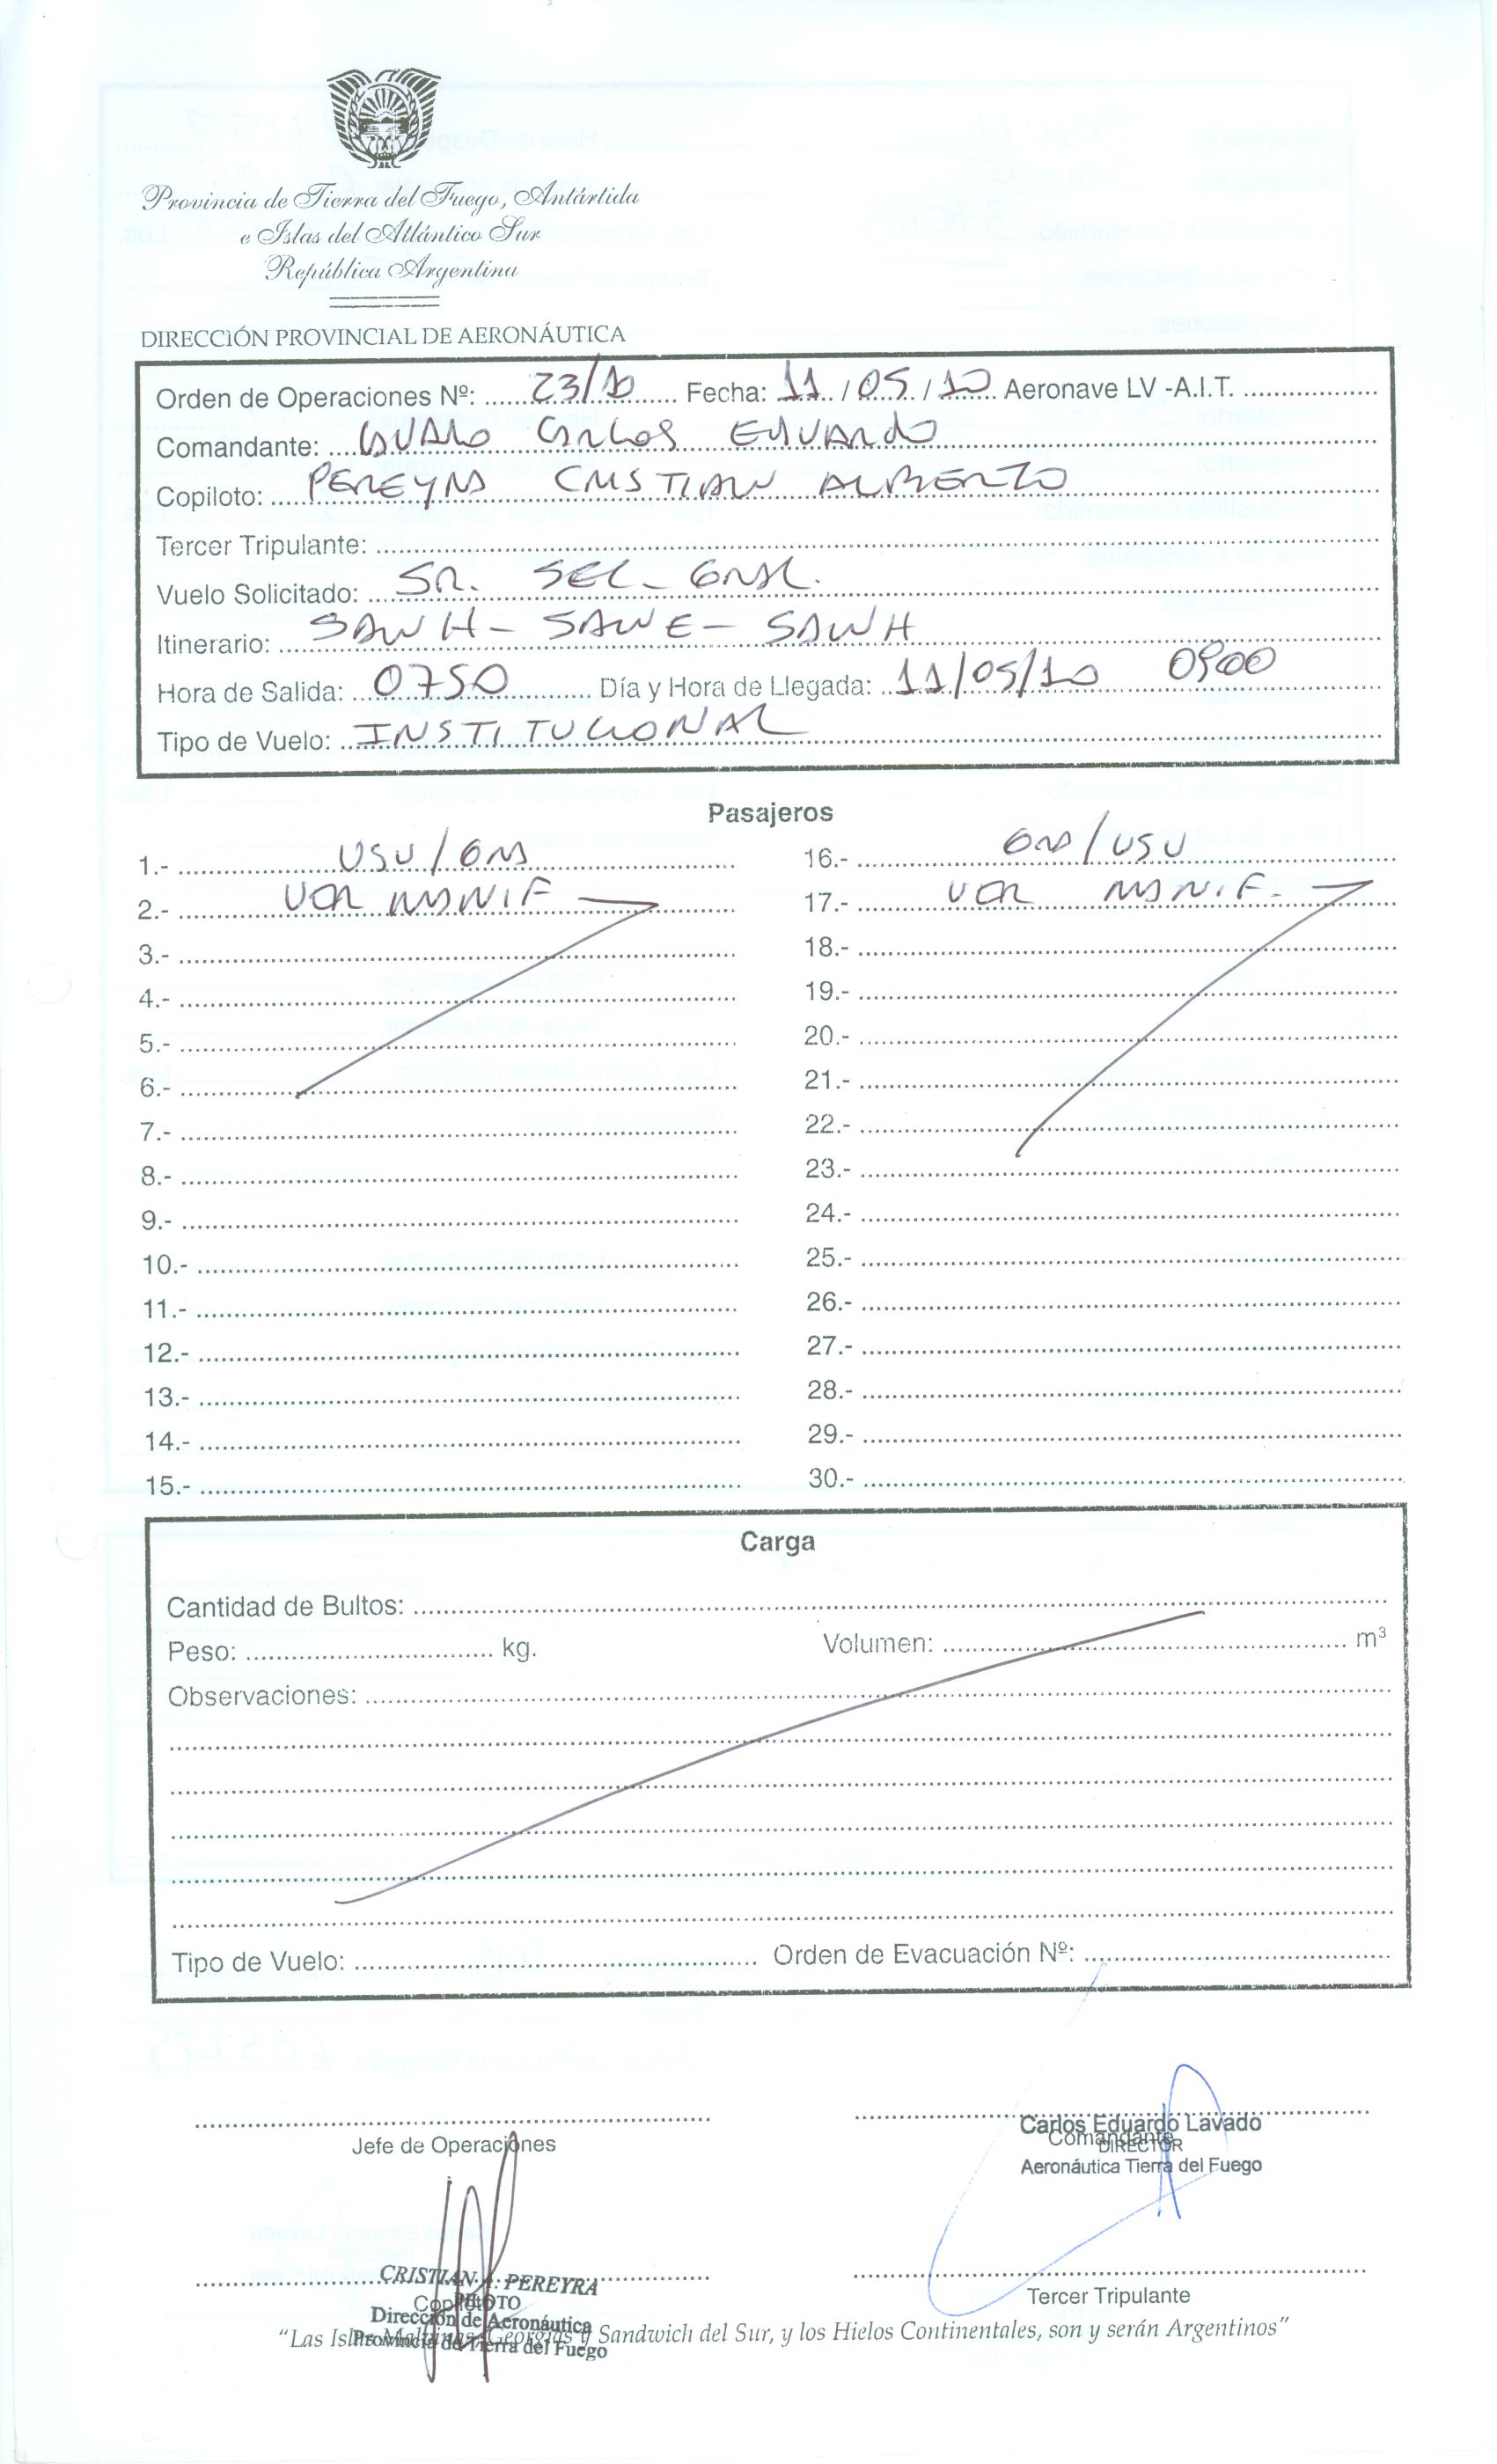 Provincia de Tierra del Fuego, Antártida
e Islas del Atlántico Sur
República Argentina
DIRECCIÓN PROVINCIAL DE AERONÁUTICA
Orden de Operaciones Nº: 23/10 Fecha: 11 / 05 / 10 Aeronave LV -A.I.T.
Comandante: LAVADO CARLOS EDUARDO
Copiloto: PEREYRA CRISTIAN ALBERTO
Tercer Tripulante:
Vuelo Solicitado: SR. SEC. GRAL.
Itinerario: SAWH - SAWE - SAWH
Hora de Salida: 0750 Día y Hora de Llegada: 11/05/10 0900
Tipo de Vuelo: INSTITUCIONAL
Pasajeros
1.- USU/GRA
2.- VER MANIF
3.-
4.-
5.-
6.-
7.-
8.-
9.-
10.-
11.-
12.-
13.-
14.-
15.-
16.- GRA/USU
17.- VER MANIF.
18.-
19.-
20.-
21.-
22.-
23.-
24.-
25.-
26.-
27.-
28.-
29.-
30.-
Carga
Cantidad de Bultos:
Peso: kg. Volumen: m³
Observaciones:
Tipo de Vuelo: Orden de Evacuación Nº:
Jefe de Operaciones
Carlos Eduardo Lavado
Comandante
DIRECTOR
Aeronáutica Tierra del Fuego
CRISTIAN A. PEREYRA
Copiloto
PILOTO
Dirección de Aeronáutica
Provincia de Tierra del Fuego
Tercer Tripulante
"Las Islas Malvinas, Georgias y Sandwich del Sur, y los Hielos Continentales, son y serán Argentinos"